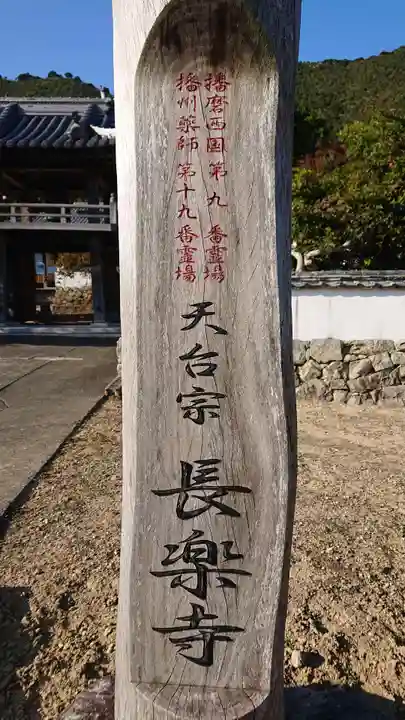 播磨西国第九番霊場
播州薬師第十九番霊場
天台宗
長楽寺